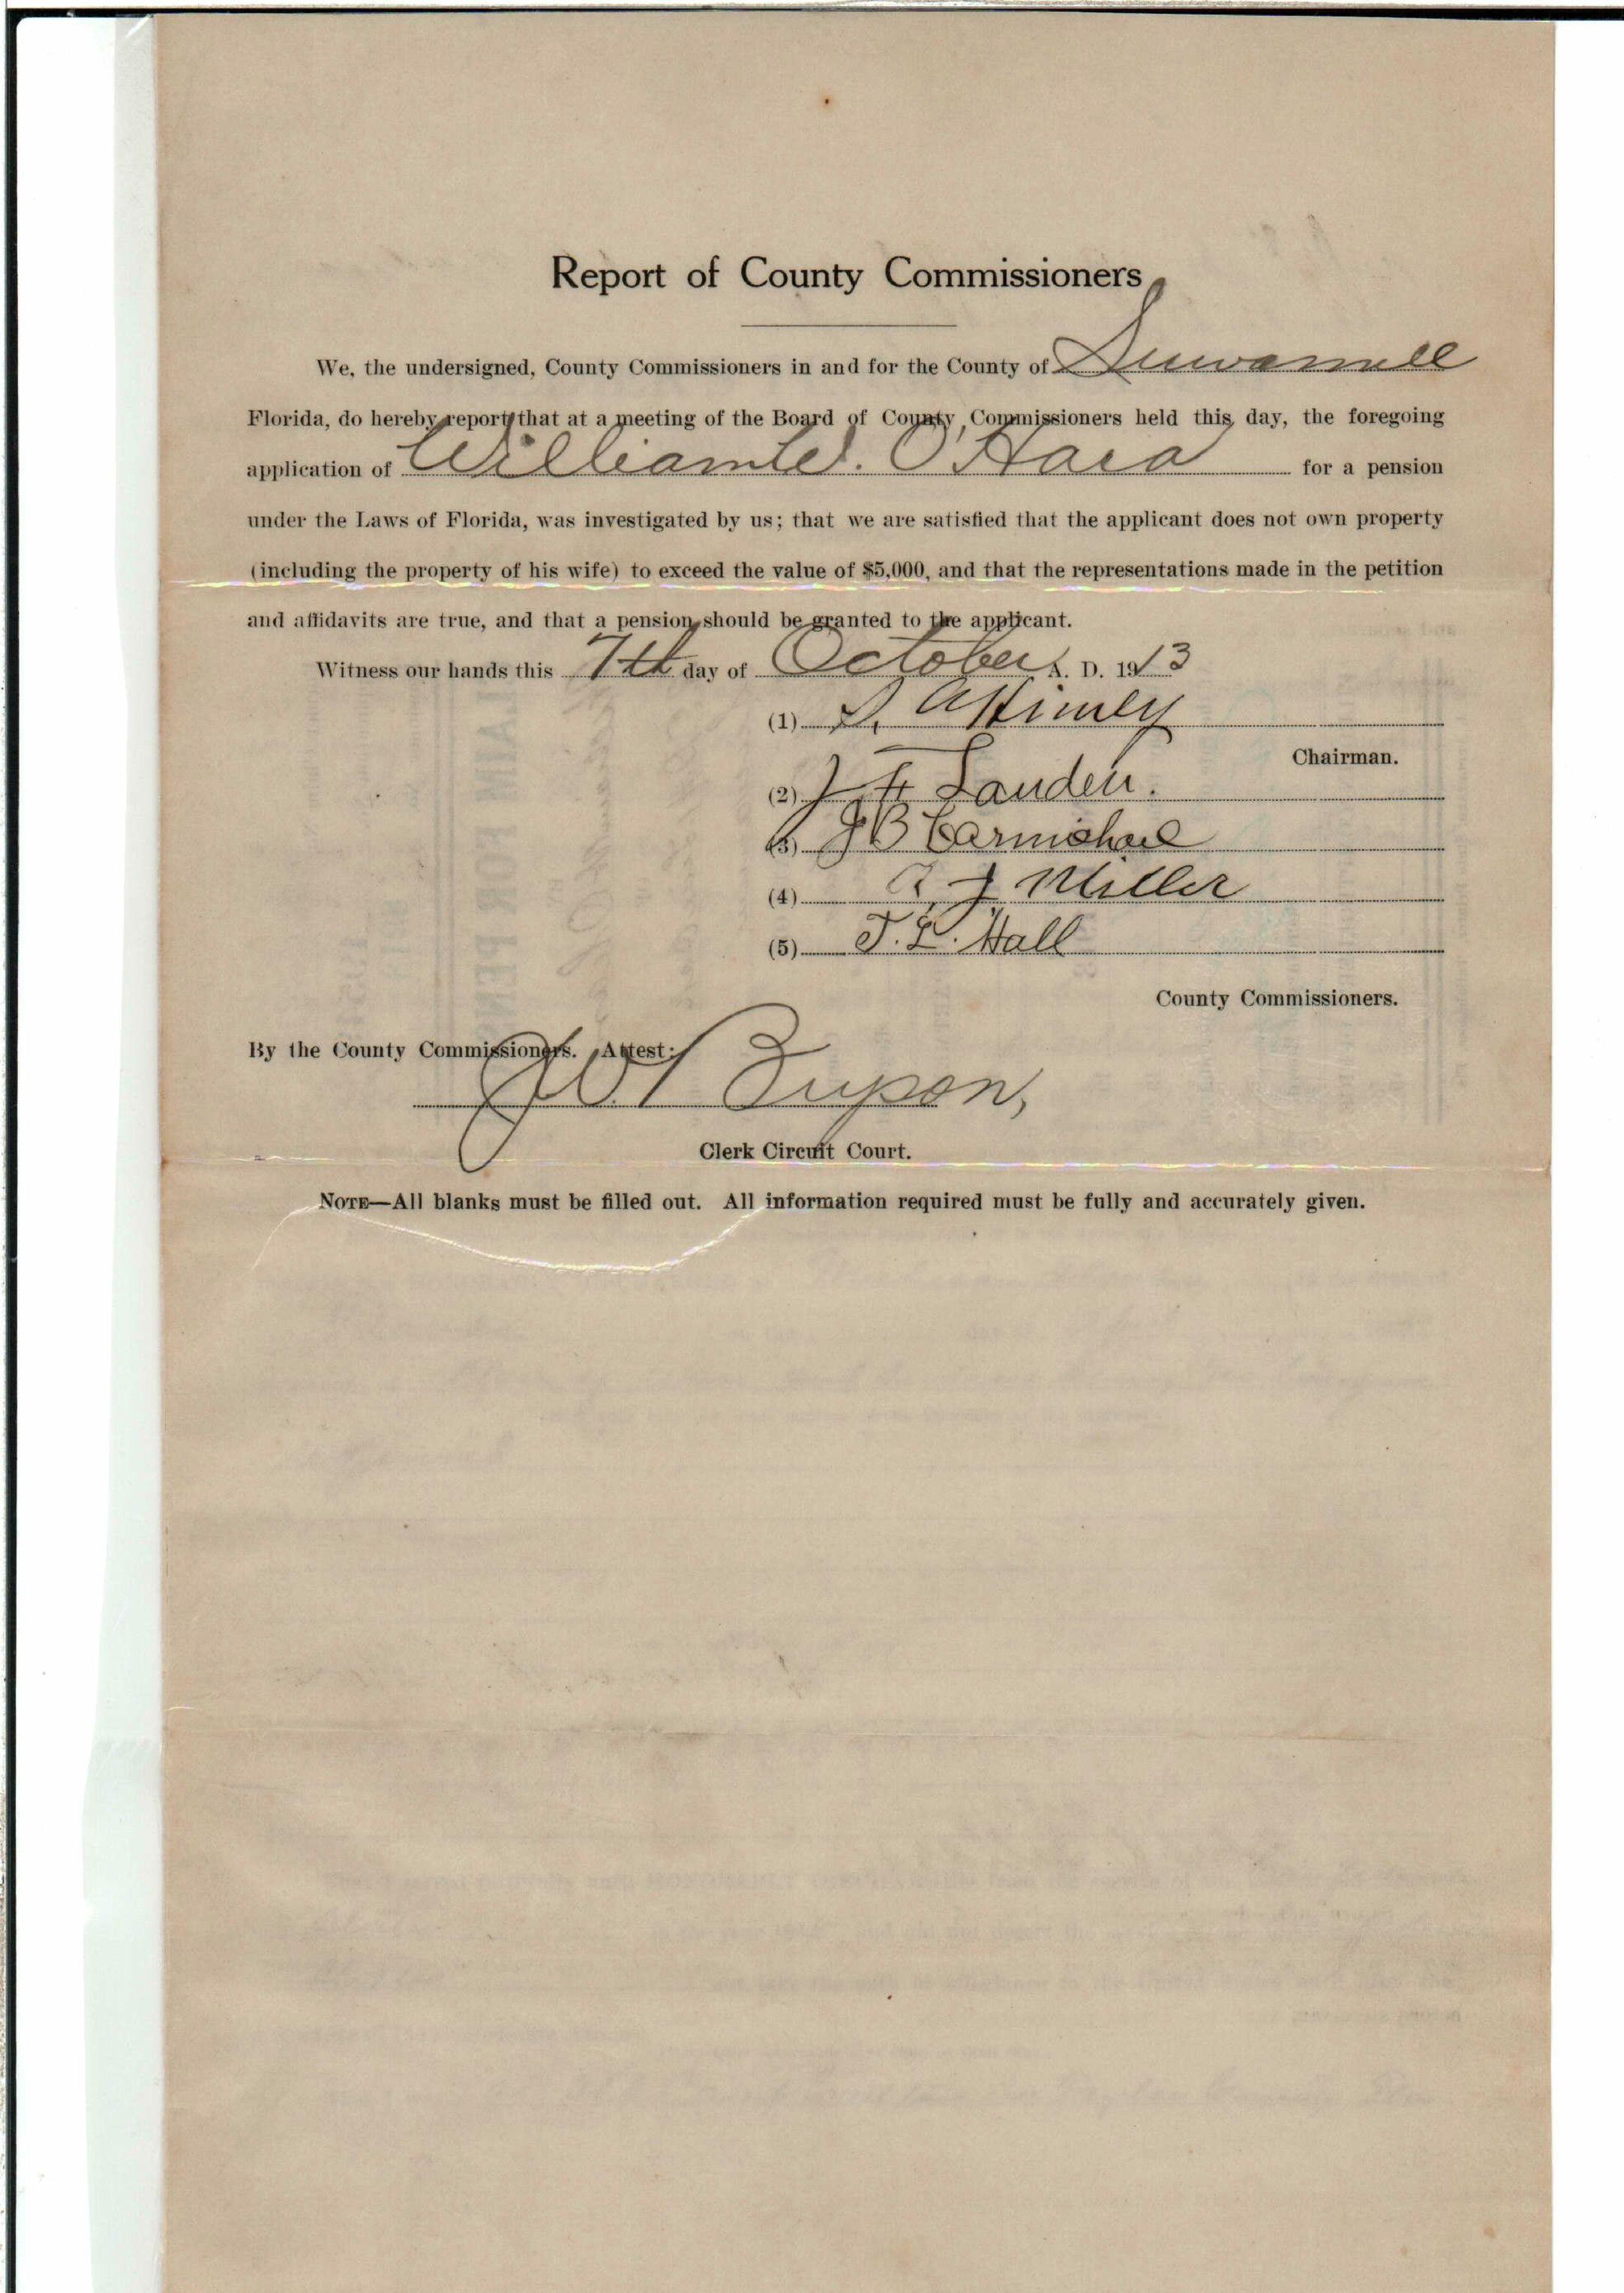 Report of County Commissioners
We, the undersigned, County Commissioners in and for the County of Suwannee
Florida, do hereby report that at a meeting of the Board of County Commissioners held this day, the foregoing
application of William W. O'Hara for a pension
under the Laws of Florida, was investigated by us; that we are satisfied that the applicant does not own property
(including the property of his wife) to exceed the value of $5,000, and that the representations made in the petition
and affidavits are true, and that a pension should be granted to the applicant.
Witness our hands this 7th day of October A. D. 1913
(1) S. A. Hinley
Chairman.
(2) J F Landen.
(3) J B Carmichael
(4) A J Miller
(5) T. L. Hall
County Commissioners.
By the County Commissioners. Attest:
J W Bryson,
Clerk Circuit Court.
NOTE—All blanks must be filled out. All information required must be fully and accurately given.